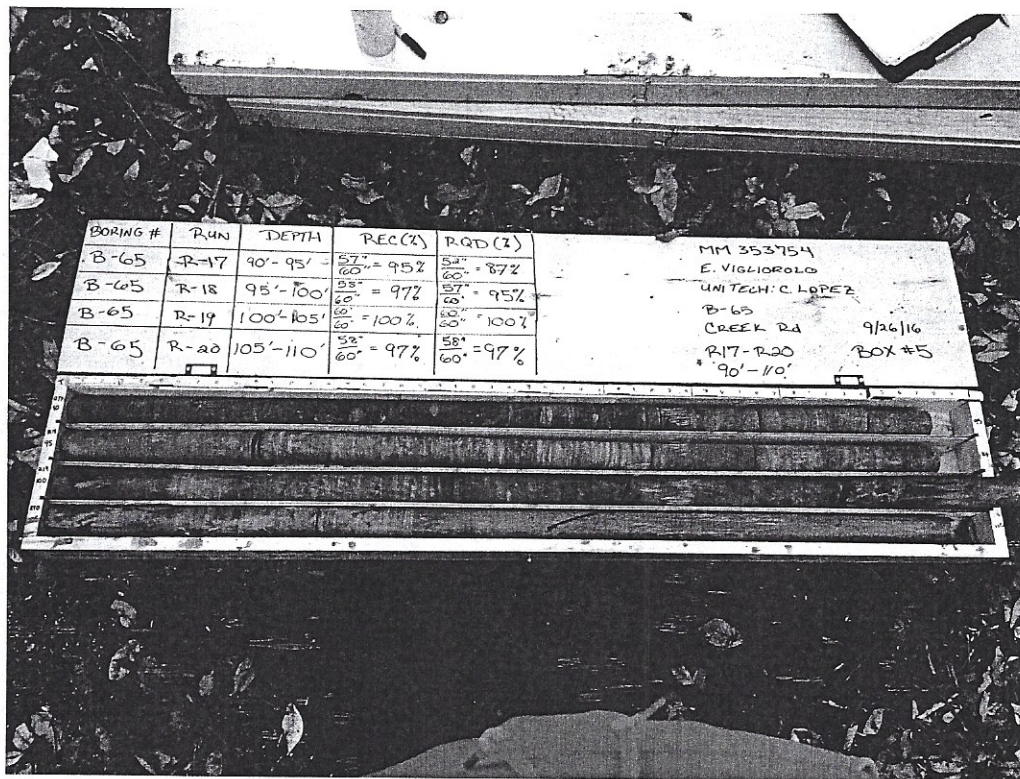 BORING # RUN DEPTH REC(%) RQD(%)
B-65 R-17 90'-95' 57"/60" = 95% 52"/60" = 87%
B-65 R-18 95'-100' 58"/60" = 97% 57"/60" = 95%
B-65 R-19 100'-105' 60"/60" = 100% 60"/60" = 100%
B-65 R-20 105'-110' 58"/60" = 97% 58"/60" = 97%
MM 353754
E. VIGLIOROLO
UNITECH: C. LOPEZ
B-65
CREEK Rd 9/26/16
R17-R20 BOX #5
90'-110'